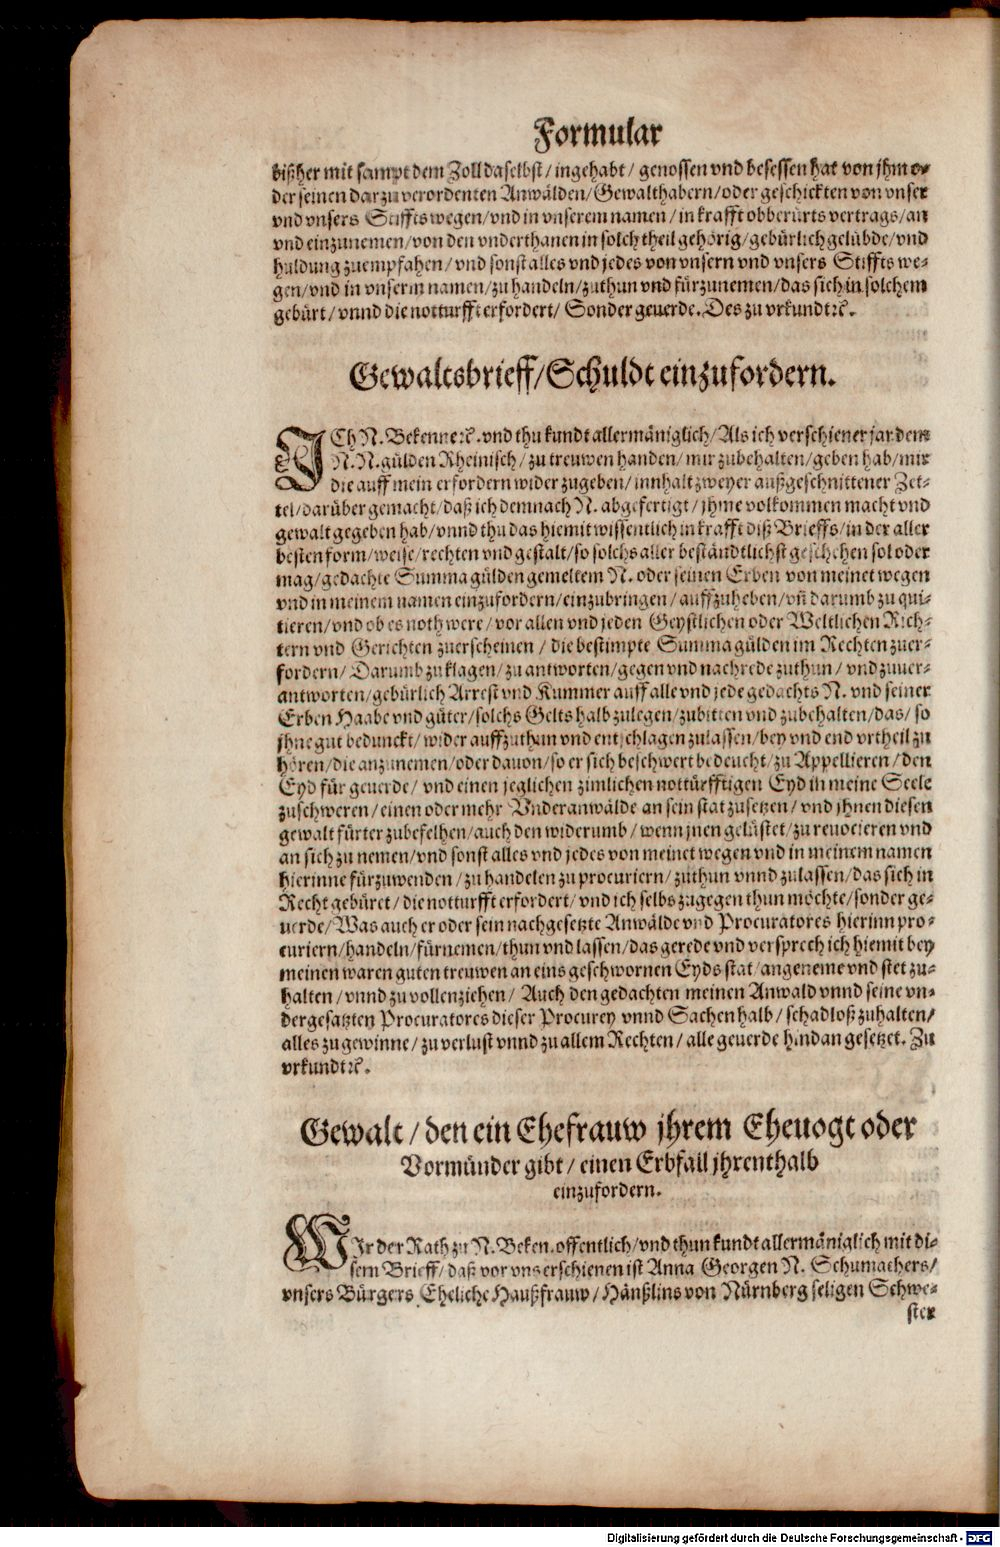 Formular
bißher mit sampt dem Zoll daselbst / ingehabt / genossen vnd besessen hat von jhm o⸗
der seinen darzu verordenten Anwälden/Gewalthabern/oder geschickten von vnser
vnd vnsers Stiffts wegen/vnd in vnserem namen / in krafft obberürts vertrags/an
vnd einzunemen/von den vnderthanen in solch theil gehörig/gebürlich gelübde/vnd
huldung zu empfahen/ vnd sonst alles vnd jedes von vnsern vnd vnsers Stiffts we⸗
gen/vnd in vnserm namen/zu handeln/zuthun vnd fürzunemen/das sich in solchem
gebürt/ vnnd die notturfft erfordert/ Sonder geuerde. Des zu vrkundt ꝛc.
Gewaltsbrieff/Schuldt einzufordern.
ICh N. Bekenne ꝛc. vnd thu kundt allermäniglich/Als ich verschiener jar dem
N. N. gülden Rheinisch/ zu treuwen handen/ mir zubehalten/geben hab/mir
die auff mein erfordern wider zugeben/ innhalt zweyer außgeschnittener Zet⸗
tel/darüber gemacht/daß ich demnach N. abgefertigt/ jhme volkommen macht vnd
gewalt gegeben hab/vnnd thu das hiemit wissentlich in krafft diß Brieffs/in der aller
besten form/weise/rechten vnd gestalt/so solchs aller beständtlichst geschehen sol oder
mag/gedachte Summa gülden gemeltem N. oder seinen Erben von meinet wegen
vnd in meinem namen einzufordern/einzubringen/ auffzuheben/vñ darumb zu qui⸗
tieren/vnd ob es noth were/ vor allen vnd jeden Geystlichen oder Weltlichen Rich⸗
tern vnd Gerichten zuerscheinen / die bestimpte Summa gülden im Rechten zuer⸗
fordern/ Darumb zu klagen/ zu antworten/gegen vnd nachrede zuthun/ vnd zuuer⸗
antworten/gebürlich Arrest vnd Kummer auff alle vnd jede gedachts N. vnd seiner
Erben Haabe vnd güter/solchs Gelts halb zulegen/zubitten vnd zubehalten/das/ so
jhne gut bedunckt/ wider auffzuthun vnd entschlagen zulassen/bey vnd end vrtheil zu
hören/die anzunemen/oder dauon/so er sich beschwert bedeucht/zu Appellieren/den
Eyd für geuerde/ vnd einen jeglichen zimlichen notturfftigen Eyd in meine Seele
zuschweren/einen oder mehr Vnderanwälde an sein stat zusetzen/ vnd jhnen diesen
gewalt fürter zubefelhen/auch den widerumb/ wenn jnen gelüstet/zu reuocieren vnd
an sich zu nemen/vnd sonst alles vnd jedes von meinet wegen vnd in meinem namen
hierinne fürzuwenden/zu handelen zu procuriern/ zuthun vnnd zulassen/das sich in
Recht gebüret/die notturfft erfordert/ vnd ich selbs zugegen thun möchte/sonder ge⸗
uerde/Was auch er oder sein nachgesetzte Anwälde vnd Procuratores hierinn pro⸗
curiern/handeln/fürnemen/thun vnd lassen/das gerede vnd versprech ich hiemit bey
meinen waren guten treuwen an eins geschwornen Eyds stat/angeneme vnd stet zu⸗
halten/vnnd zu vollenziehen/ Auch den gedachten meinen Anwald vnnd seine vn⸗
dergesatzten Procuratores dieser Procurey vnnd Sachen halb/ schadloß zuhalten/
alles zu gewinne/zu verlust vnnd zu allem Rechten/alle geuerde hindan gesetzet. Zu
vrkundt ꝛc.
Gewalt/den ein Ehefrauw jhrem Eheuogt oder
Vormünder gibt/ einen Erbfall jhrenthalb
einzufordern.
WIr der Rath zu N. Beken. offentlich/vnd thun kundt allermäniglich mit di⸗
sem Brieff/ daß vor vns erschienen ist Anna Georgen N. Schumachers/
vnsers Bürgers Eheliche Haußfrauw/Hänßlins von Nürnberg seligen Schwe⸗
ster
Digitalisierung gefördert durch die Deutsche Forschungsgemeinschaft - DFG